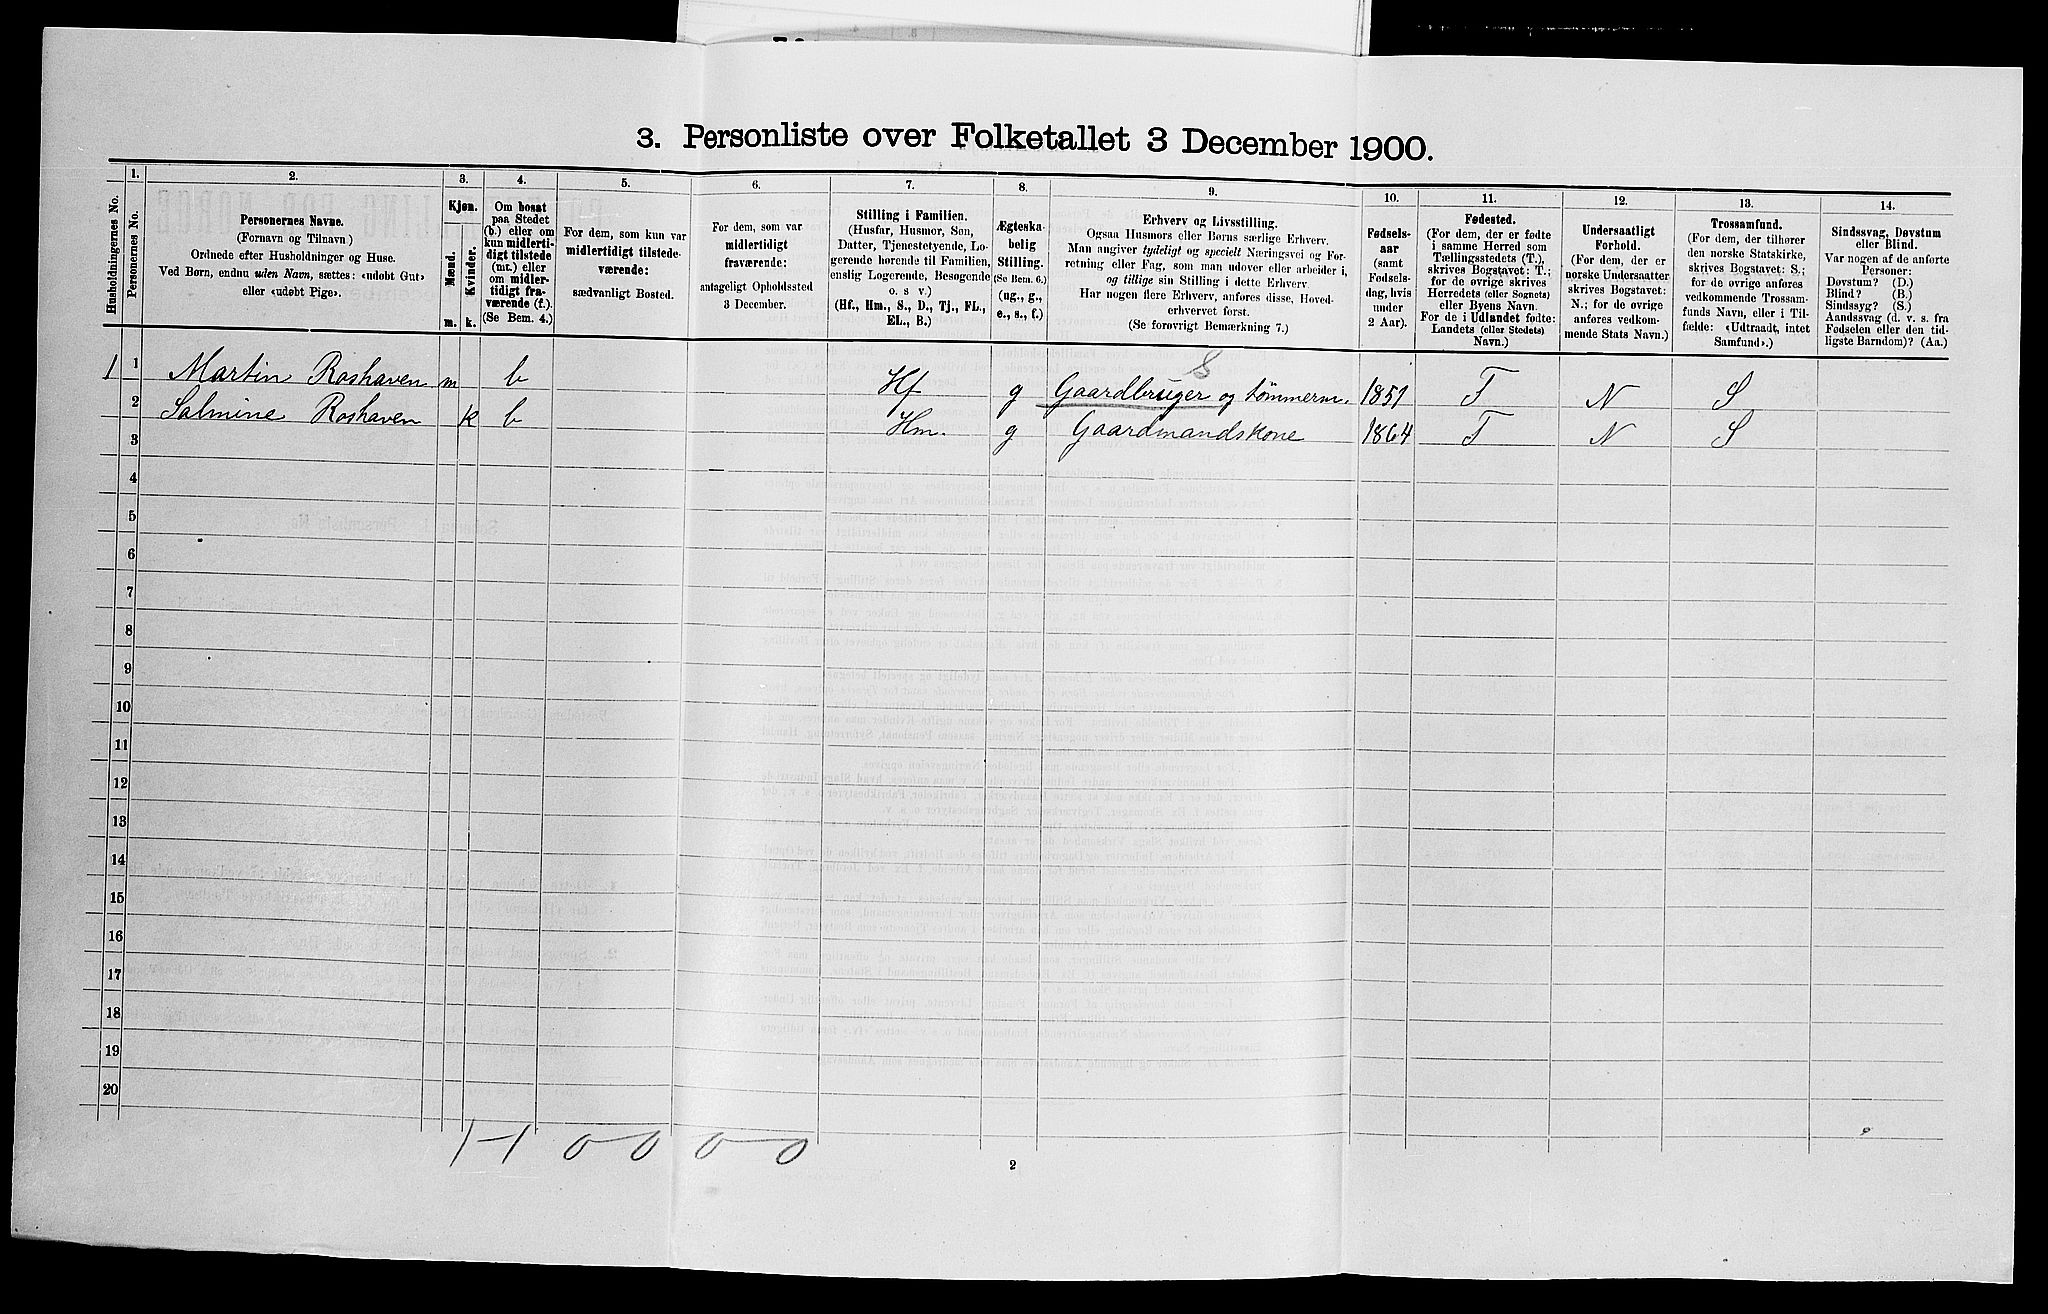 3. Personliste over Folketallet 3 December 1900.
Husholdningernes No.
1.
Personernes No.
2.
Personernes Navne.
(Fornavn og Tilnavn)
Ordnede efter Husholdninger og Huse.
Ved Børn, endnu uden Navn, sættes: «udøbt Gut»
eller «udøbt Pige».
3.
Kjøn.
Mænd.
Kvinder.
m.
k.
4.
Om bosat
paa Stedet
(b.) eller om
kun midlerti-
digt tilstede
(mt.) eller
om midler-
tidigt fra-
værende (f.).
(Se Bem. 4.)
5.
For dem, som kun var
midlertidigt tilstede-
værende:
sædvanligt Bosted.
6.
For dem, som var
midlertidigt
fraværende:
antageligt Opholdssted
3 December.
7.
Stilling i Familien.
(Husfar, Husmor, Søn,
Datter, Tjenestetyende, Lo-
gerende hørende til Familien,
enslig Logerende, Besøgende
o. s v.)
(Hf., Hm., S., D., Tj., FL.,
EL., B.)
8.
Ægteska-
belig
Stilling.
(Se Bem. 6.)
(ug., g.,
e., s., f.)
9.
Erhverv og Livsstilling.
Ogsaa Husmors eller Børns særlige Erhverv.
Man angiver tydeligt og specielt Næringsvei og For-
retning eller Fag, som man udover eller arbeider i,
og tillige sin Stilling i dette Erhverv.
Har nogen flere Erhverv, anføres disse, Hoved-
erhvervet først.
(Se forøvrigt Bemærkning 7.)
10.
Fødsels-
aar
(samt
Fødsels-
dag, hvis
under
2 Aar).
11.
Fødested.
(For dem, der er fødte
i samme Herred som
Tællingsstedets (T.),
skrives Bogstavet: T.;
for de øvrige skrives
Herredets (eller Sognets)
eller Byens Navn.
For de i Udlandet fødte:
Landets (eller Stedets)
Navn.)
12.
Undersaatligt
Forhold.
(For dem, der er
norske Undersaatter
skrives Bogstavet:
N.; for de øvrige
anføres vedkom-
mende Stats Navn.)
13.
Trossamfund.
(For dem, der tilhører
den norske Statskirke,
skrives Bogstavet: S.;
for de øvrige anføres
vedkommende Trossam-
funds Navn, eller i Til-
fælde: «Udtraadt, intet
Samfund».)
14.
Sindssvag, Døvstum
eller Blind.
Var nogen af de anførte
Personer:
Døvstum? (D.)
Blind? (B.)
Sindssyg? (S.)
Aandssvag (d. v. s. fra
Fødselen eller den tid-
ligste Barndom)? (Aa.)
1 1 Martin Roshaven m b Hf g Gaardbruger og tømmerm. 1851 T N S
2 Salmine Roshaven k b Hm. g Gaardmandskone 1864 T N S
3
4
5
6
7
8
9
10
11
12
13
14
15
16
17
18
19
20
1-1 0 0 0 0
2